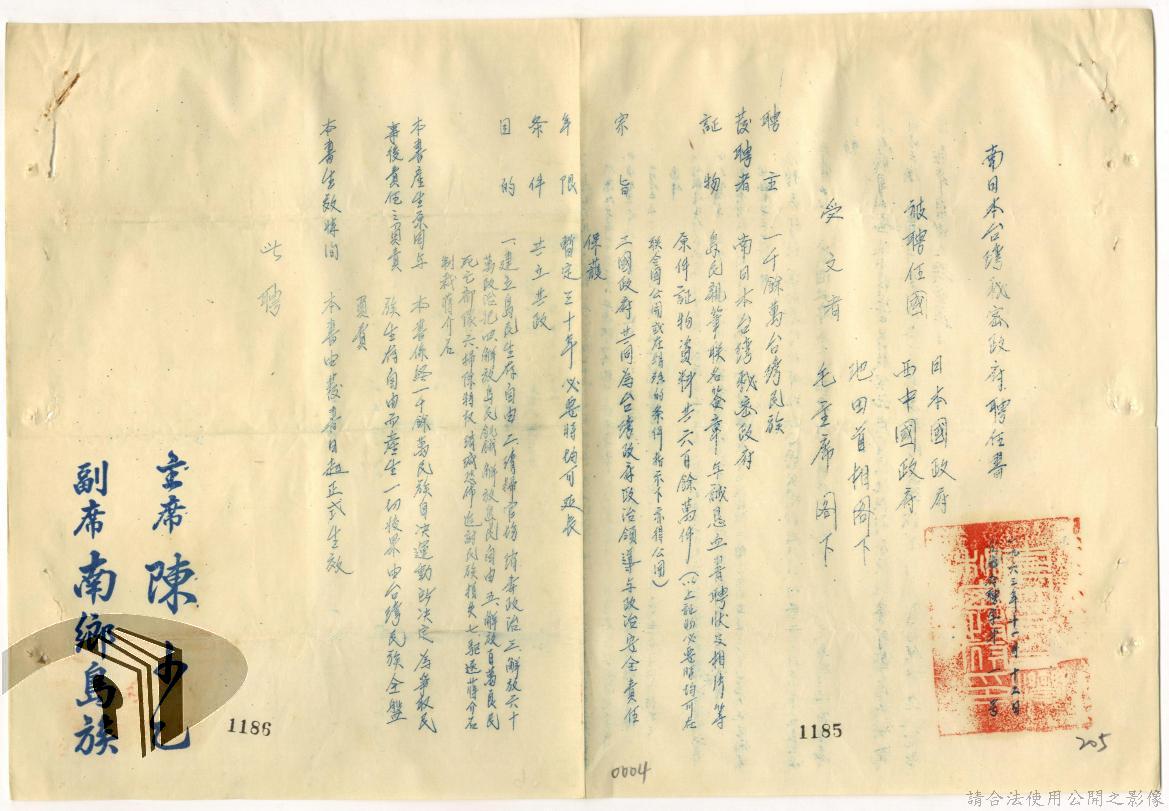 南日本台湾秘密政府聘任書
一九六三年十一月十二日
被聘任國
日本國政府
西中國政府
受文者
池田首相閣下
毛主席閣下
聘主 一千餘萬台湾民族
發聘者 南日本台湾秘密政府
証物 島民親筆聯名簽章年誠懇血書聘狀及相片等
原件証物資料共六百餘萬件(以上証物必要時均可在
聯合國公開或在特殊的条件指示下亦得公開)
宗旨 三國政府共同為台湾政府政治領導与政治安全責任
保護
年限 暫定三十年必要時均可延長
条件 共立共政
目的 一建立島民生存自由二清掃官場清奉政治三解放六十
萬政治犯四解放島民飢餓解放島民自由五解放百萬良民
死亡
六掃除特权清滅恐怖追討民族損失七驅逐蔣介石
制裁蔣介石
本書產生原因与
事後責任之負責
本書係經一千餘萬民族自決運動所決定為爭取民
族生存自由而產生一切後果由台湾民族全盤
負責
本書生效時間 本書由發書日起正式生效
此聘
主席 陳
副席 南鄉島族
1186
1185
0004
205
請合法使用公開之影像